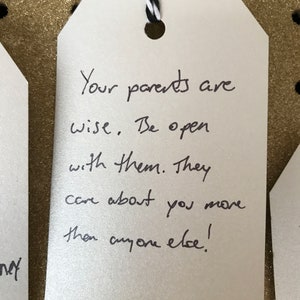 Your parents are
wise. Be open
with them. They
care about you more
than anyone else!